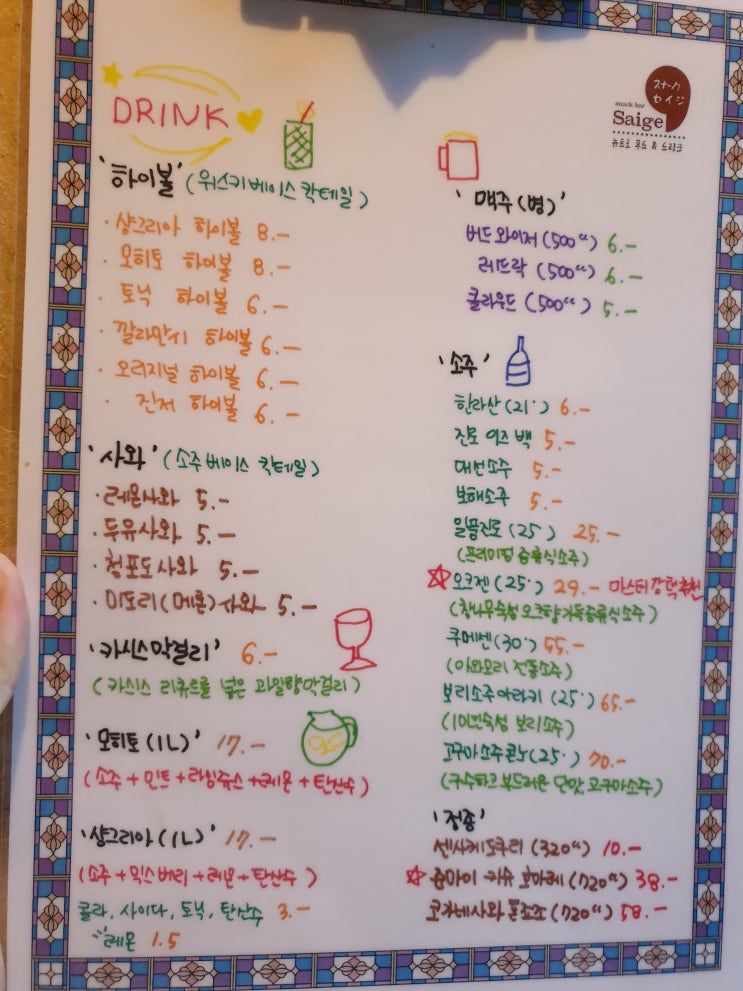 DRINK
'하이볼' (위스키베이스 칵테일)
· 샹그리아 하이볼 8.-
· 모히토 하이볼 8.-
· 토닉 하이볼 6.-
· 깔라만시 하이볼 6.-
· 오리지널 하이볼 6.-
· 진저 하이볼 6.-
'사와' (소주베이스 칵테일)
· 레몬사와 5.-
· 두유사와 5.-
· 청포도사와 5.-
· 미도리(메론)사와 5.-
'카시스막걸리' 6.-
(카시스 리큐르를 넣은 과일향막걸리)
'모히토(1L)' 17.-
(소주+민트+라임쥬스+레몬+탄산수)
'샹그리아(1L)' 17.-
(소주+믹스베리+레몬+탄산수)
콜라, 사이다, 토닉, 탄산수 3.-
레몬 1.5
スナック
セイジ
snack bar
Saige
뉴트로 푸드 & 드링크
'맥주(병)'
버드와이저(500cc) 6.-
레뜨락 (500cc) 6.-
클라우드(500cc) 5.-
'소주'
한라산(21°) 6.-
진로 이즈 백 5.-
대선소주 5.-
보해소주 5.-
일품진로(25°) 25.-
(프리미엄 증류식소주)
☆ 오크젠(25°) 29.- 마스터강력추천
(참나무숙성 오크향가득증류식소주)
쿠메센(30°) 55.-
(아와모리 전통소주)
보리소주아라키(25°) 65.-
(10년숙성 보리소주)
고구마소주콘노(25°) 70.-
(구수하고 부드러운 단맛, 고구마소주)
'정종'
센사케도쿠리(320cc) 10.-
☆ 쥬마이 키슈 호마레(720cc) 38.-
(720cc) 58.-